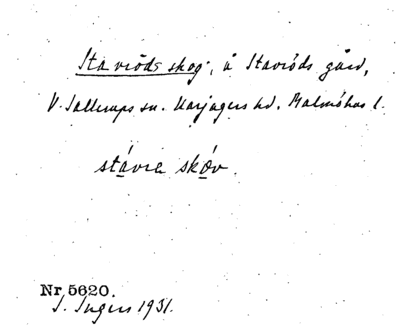 Staviöds skog, å Staviöds gård,
V. Sallerups sn. Harjagers hd. Malmöhus l.
stávra skóv.
Nr 5620.
I. Ingers 1931.